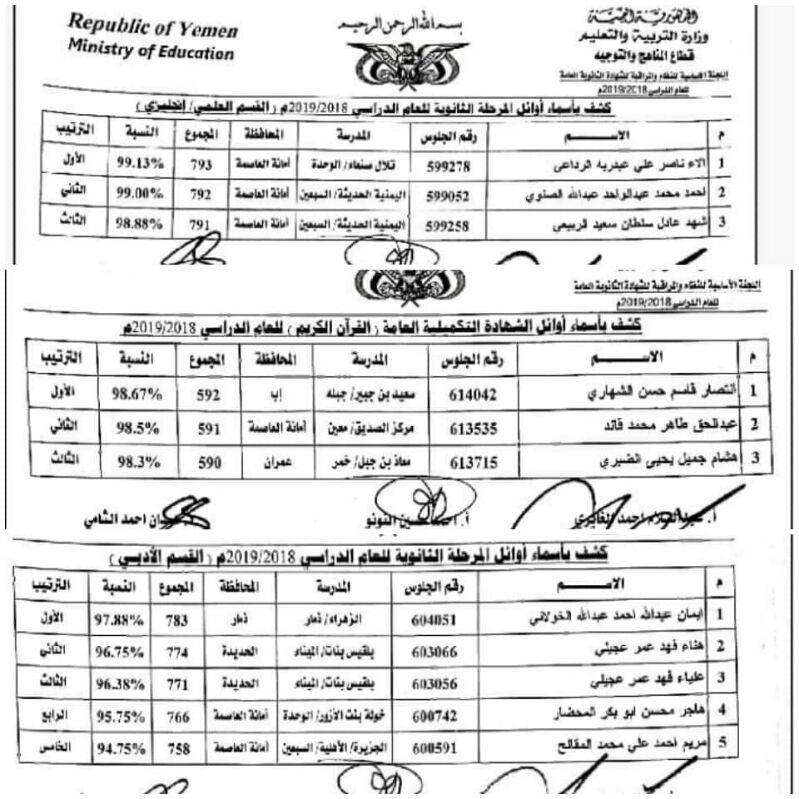 Republic of Yemen
Ministry of Education
بسم الله الرحمن الرحيم
الجمهورية اليمنية
وزارة التربية والتعليم
قطاع المناهج والتوجيه
اللجنة الاساسية للنظام والمراقبة للشهادة الثانوية العامة
للعام الدراسي 2019/2018م
كشف بأسماء أوائل المرحلة الثانوية للعام الدراسي 2019/2018م ( القسم العلمي/ إنجليزي )
م الاســـــم رقم الجلوس المدرسة المحافظة المجموع النسبة الترتيب
1 الاء ناصر علي عبدربه الرداعي 599278 تلال صنعاء/ الوحدة أمانة العاصمة 793 99.13% الأول
2 احمد محمد عبدالواحد عبدالله الصنوي 599052 اليمنية الحديثة/ السبعين أمانة العاصمة 792 99.00% الثاني
3 شهد عادل سلطان سعيد الربيعي 599258 اليمنية الحديثة/ السبعين أمانة العاصمة 791 98.88% الثالث
اللجنة الأساسية للنظام والمراقبة للشهادة الثانوية العامة
للعام الدراسي 2019/2018م
كشف بأسماء أوائل الشهادة التكميلية العامة ( القرآن الكريم ) للعام الدراسي 2019/2018م
م الاســـــم رقم الجلوس المدرسة المحافظة المجموع النسبة الترتيب
1 انتصار قاسم حسن الشهاري 614042 سعيد بن جبير/ جبله إب 592 98.67% الأول
2 عبدالحق طاهر محمد قائد 613535 مركز الصديق/ معين أمانة العاصمة 591 98.5% الثاني
3 هشام جميل يحيى الضبري 613715 معاذ بن جبل/ خمر عمران 590 98.3% الثالث
أ. احمد حسين النونو احمد الشامي
كشف بأسماء أوائل المرحلة الثانوية للعام الدراسي 2019/2018م ( القسم الأدبي )
م الاســـــم رقم الجلوس المدرسة المحافظة المجموع النسبة الترتيب
1 ايمان عبدالله احمد عبدالله الخولاني 604051 الزهراء/ ذمار ذمار 783 97.88% الأول
2 هناء فهد عمر عجيلي 603066 بلقيس بنات/ الميناء الحديدة 774 96.75% الثاني
3 علياء فهد عمر عجيلي 603056 بلقيس بنات/ الميناء الحديدة 771 96.38% الثالث
4 هاجر محسن ابو بكر المحضار 600742 خولة بنت الأزور/ الوحدة أمانة العاصمة 766 95.75% الرابع
5 مريم احمد علي محمد المقالح 600591 الجزيرة/ الأهلية/ السبعين أمانة العاصمة 758 94.75% الخامس